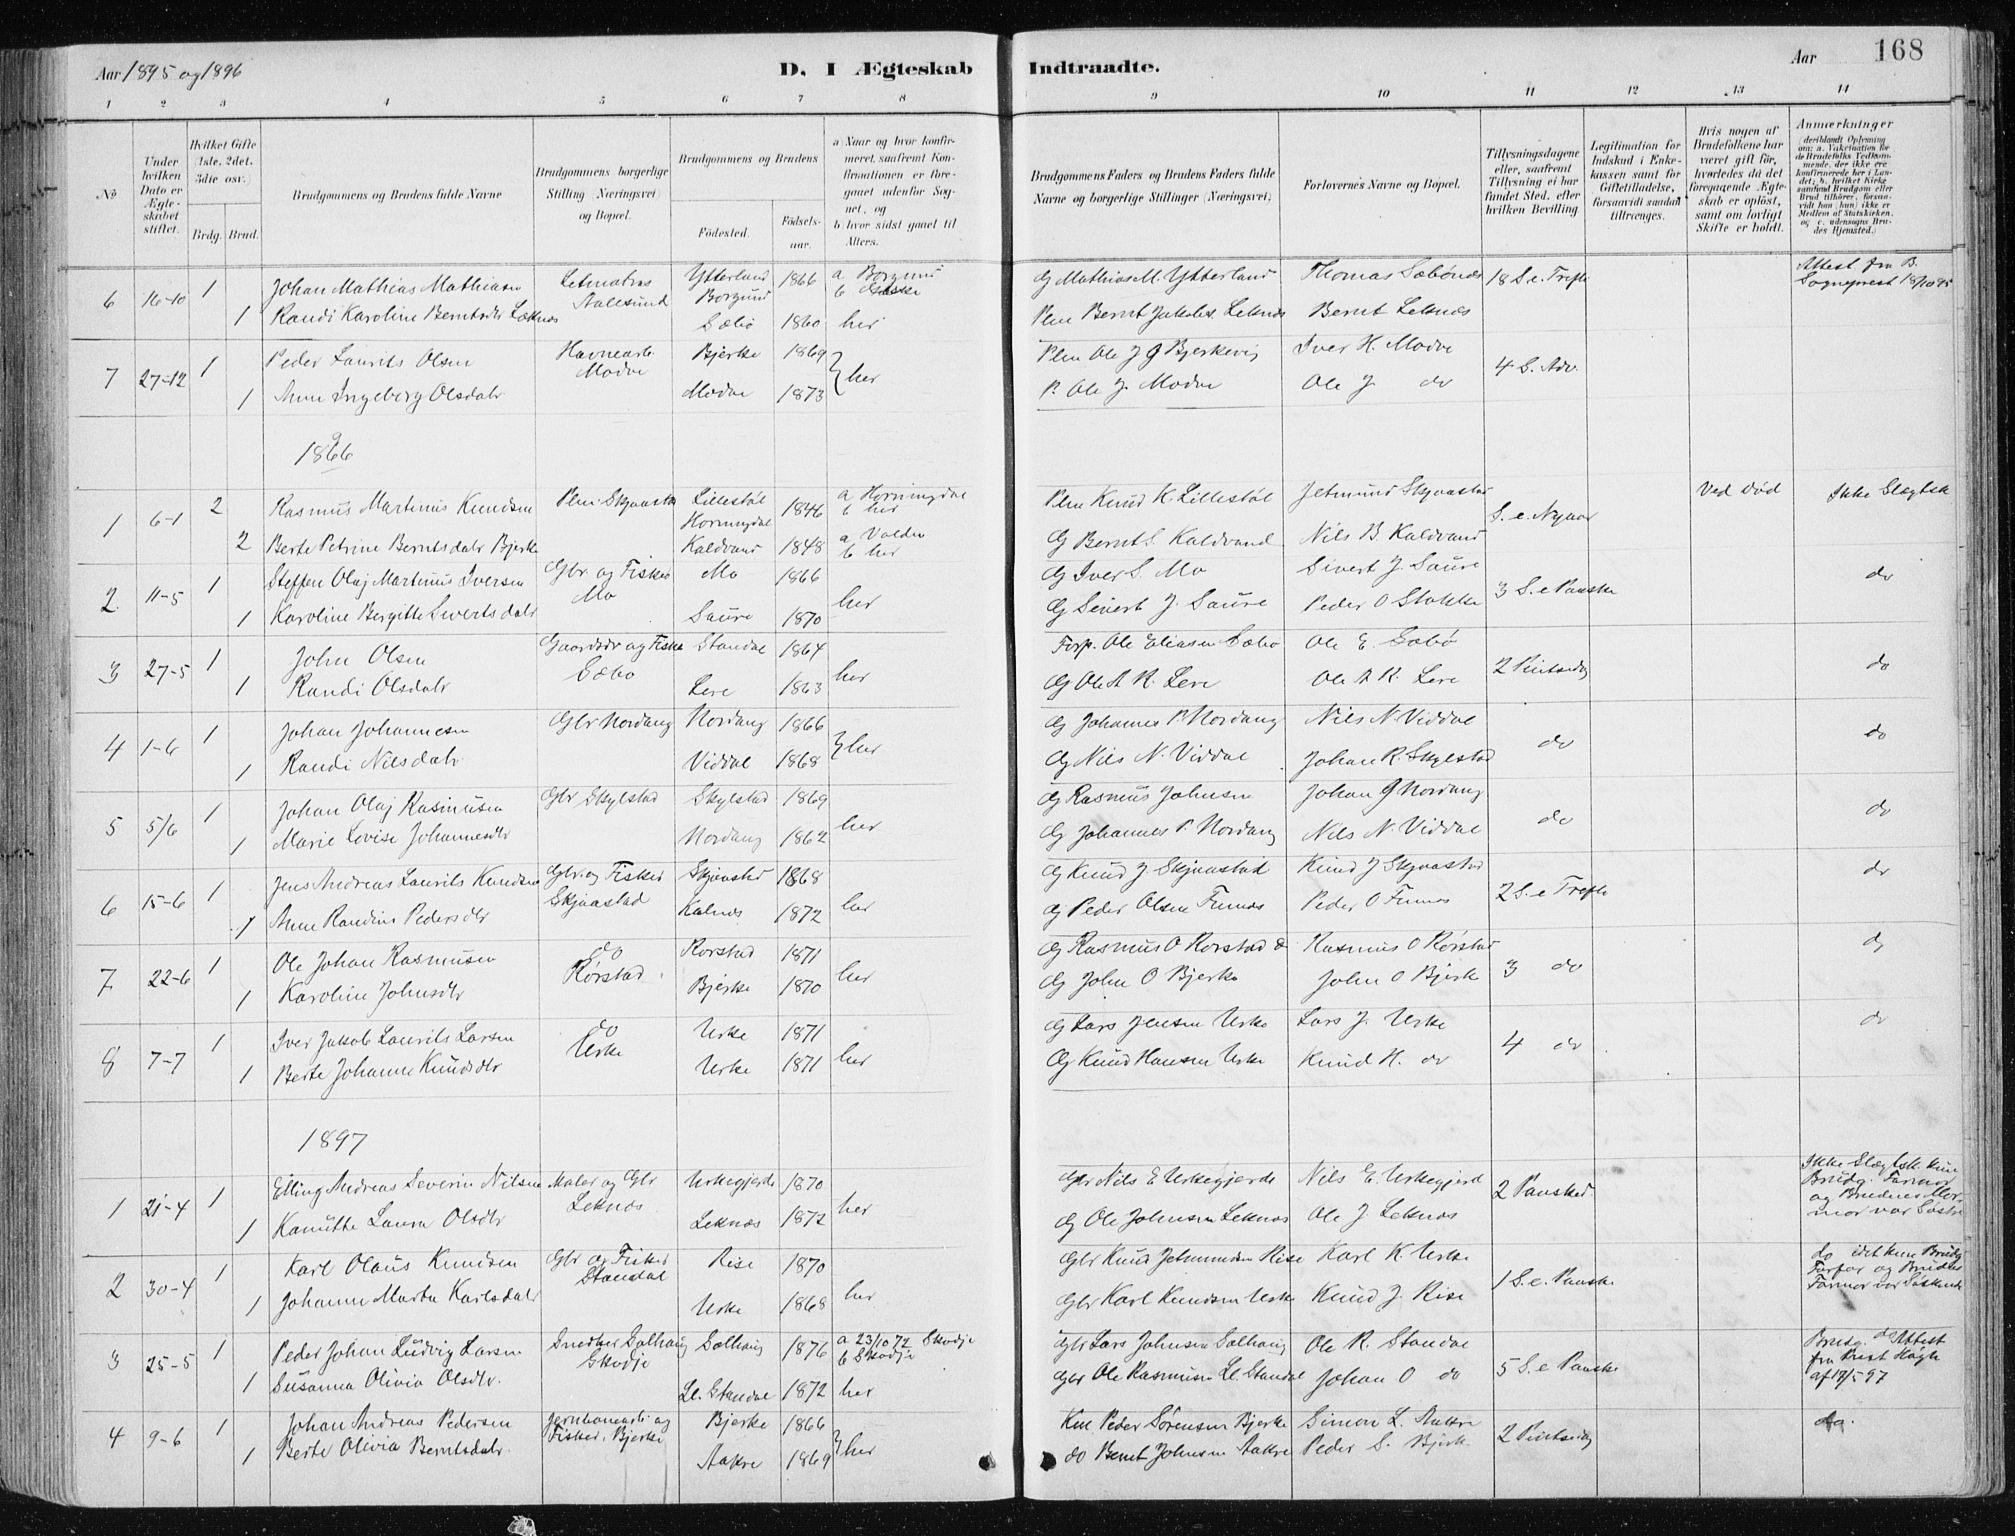 Aar 1895 og 1896
D. I Ægteskab Indtraadte.
Aar 168
1 2 3 4 5 6 7 8 9 10 11 12 13 14
№
Under hvilken Dato er Ægteskabet stiftet.
Hvilket Gifte (1ste, 2det, 3die osv.)
Brdg. Brud.
Brudgommens og Brudens fulde Navne
Brudgommens borgerlige Stilling (Næringsvei) og Bopæl.
Brudgommens og Brudens
Fødested.
Fødselsaar.
a) Naar og hvor konfirmeret, saafremt Konfirmationen er foregaaet udenfor Sognet, og
b) hvor sidst gaaet til Alters.
Brudgommens Faders og Brudens Faders fulde Navne og borgerlige Stillinger (Næringsvei)
Forlovernes Navne og Bopæl.
Tillysningsdagene eller, saafremt Tillysning ei har fundet Sted, efter hvilken Bevilling.
Legitimation for Indskud i Enkekassen samt for Giftetilladelse, forsaavidt saadan tiltrænges.
Hvis nogen af Brudefolkene har været gift før, hvorledes da det foregaaende Ægteskab er opløst, samt om lovligt Skifte er holdt.
Anmærkninger
6 16-10 1 Johan Mathias Mathiasen Aalesund Ytterland Borgund 1866 a Borgund G Mathias M. Ytterland Thomas Sæbønes 18 S. e. Trefh Attest fra B. Sogneprest
1 Randi Karoline Berntsdtr Leknes Sæbø 1860 her Plm Bernt Jakobs. Leknes Bernt Leknes
7 27-12 1 Peder Laurits Olsen Havnearb. Modve Bjerke 1869 her Plm Ole J G Bjerkevig Iver H. Modve 4 S. Adv.
1 Anne Ingeborg Olsdatr Modve 1873 P. Ole J. Modve Ole J. do
1896
1 6-1 2 Rasmus Martinus Knudsen Plm. Skjaastad Lillestøl Horningdal 1846 a Horningdal b her Plm Knud K. Lillestøl Jetmund Skjaastad S. e. Nyaar Ved Død Ikke Slægtsk
2 Berte Petrine Berntsdatr Bjerke Kaldvand 1848 a Volden b her G Bernt S. Kaldvand Nils B. Kaldvand
2 11-5 1 Steffen Olaj Martinus Iversen Gbr. og Fisker Mo Mo 1866 her G Iver S. Mo Sivert J. Saure 3 S. e Paaske do
1 Karoline Bergitte Sivertsdatr Saure 1870 G Sivert J. Saure Peder O Stokke
3 27-5 1 John Olsen Gaardbr og Fisker Sæbø Standal 1864 her Forp. Ole Eliasen Sæbø Ole E. Sæbø 2 Pintsedag do
1 Randi Olsdatr Lere 1863 G Ole A R. Lere Ole A R. Lere
4 1-6 1 Johan Johannesen Gbr Nordang Nordang 1866 her G Johannes P. Nordang Nils N. Viddal do do
1 Randi Nilsdatr Viddal 1868 G Nils N. Viddal Johan R. Skylstad
5 5/6 1 Johan Olaj Rasmusen Gbr Skylstad Skylstad 1869 her G Rasmus Johnsen Johan J Nordang do do
1 Marie Lovise Johannesdtr Nordang 1862 G Johannes P. Nordang Nils N. Viddal
6 15-6 1 Jens Andreas Laurits Knudsen Gbr. og Fisker Skjaastad Skjaastad 1868 her G Knud J Skjaastad Knud J Skjaastad 2 S. e Trefh do
1 Anne Randine Pedersdtr Kalnes 1872 G Peder Olsen Finnes Peder O Finnes
7 22-6 1 Ole Johan Rasmusen do Rørstad Rørstad 1871 her G Rasmus O Rørstad Rasmus O Rørstad 3 do do
1 Karoline Johnsdtr Bjerke 1870 G John O Bjerke John O Bjerk
8 7-7 1 Iver Jakob Laurits Larsen do Urke Urke 1871 her G Lars Jensen Urke Lars J. Urke 4 do do
1 Berte Johanne Knudsdtr Urke 1871 G Knud Hansen Urke Knud H. do
1897
1 21-4 1 Elling Andreas Severin Nilsen Maler og Gbr Leknes Urkegjerde 1870 her Gbr Nils E Urkegjerde Nils E. Urkegjerd 2 Paasked Ikke Slægtsk. kun Brudg. Farmor og Brudens Mormor var Søstre
1 Kanutte Laura Olsdtr Leknes 1872 G Ole Johnsen Leknes Ole J. Leknes
2 30-4 1 Karl Olaus Knudsen Gbr og Fisker Standal Rise 1870 her Gbr Knud Jetmundsen Rise Karl K. Urke 1 S. e. Paaske do idet kun Brudg Farfar og Brudens Farmor var Søskende
1 Johanne Marta Karlsdatr Urke 1868 Gbr Karl Knudsen Urke Knud J. Rise
3 25-5 1 Peder Johan Ludvig Larsen Snedker Solhaug Skodje Solhaug 1876 b Skodje Gbr Lars Johnsen Solhaug Ole R. Standal 5 S. e Paaske Brudg. Attest fra Prest Høgh
1 Susanna Olivia Olsdtr. Ll. Standal 1872 her Gbr Ole Rasmusen Ll Standal Johan O do
4 9-6 1 Johan Andreas Pedersen Jernbanearb. og Fisker, Bjerke Bjerke 1866 her Peder Sørensen Bjerke Simon L. Aakre 2 Pintsedag do.
1 Berte Olivia Berntsdatr. Aakre 1869 do Bernt Johnsen Aakre Peder S. Bjerk